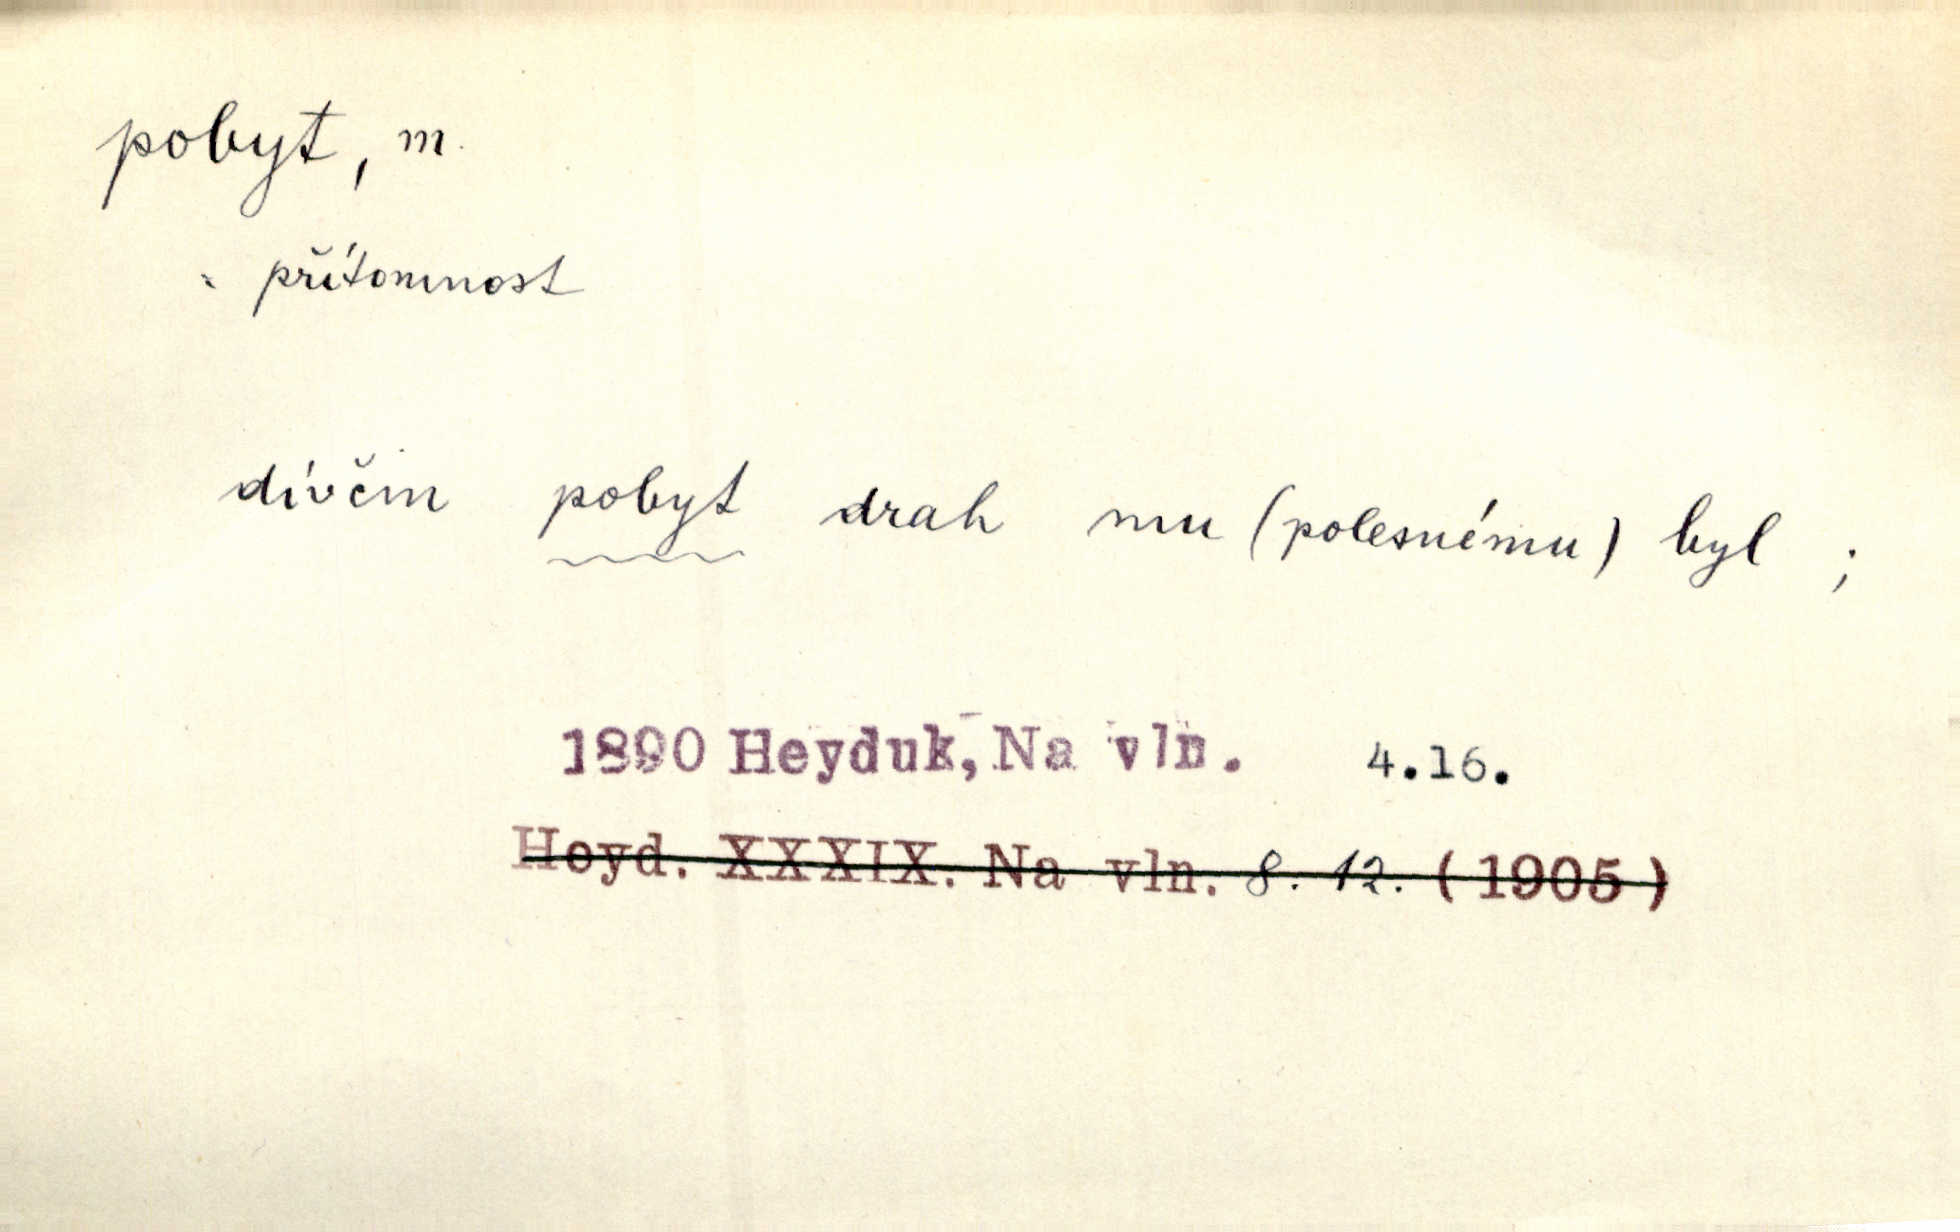 pobyt, m.
přítomnost
dívčin pobyt drah mu (polesnému) byl ;
1890 Heyduk, Na vln. 4.16.
Heyd. XXXIX. Na vln. 8. 12. (1905)